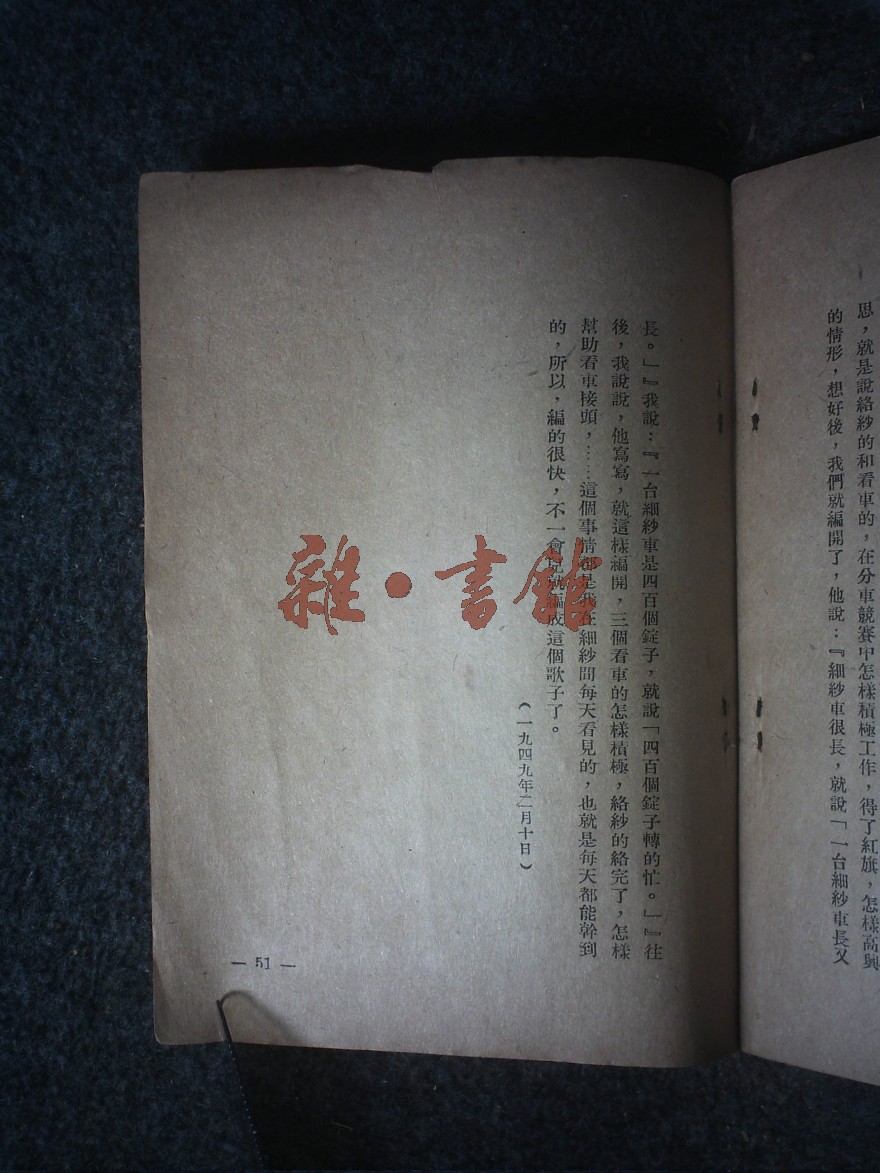 思，就是說絡紗的和看車的，在分車競賽中怎樣積極工作，得了紅旗，怎樣高興
的情形，想好後，我們就編開了，他說：『細紗車很長，就說「一台細紗車長又
長。」『我說：『一台細紗車是四百個錠子，就說「四百個錠子轉的忙。」』往
後，我說說，他寫寫，就這樣編開，三個看車的怎樣積極，絡紗的絡完了，怎樣
幫助看車接頭，……這個事情都是我在細紗間每天看見的，也就是每天都能幹到
的，所以，編的很快，不一會兒就編成這個歌子了。
（一九四九年二月十日）
— 51 —
雜·書館